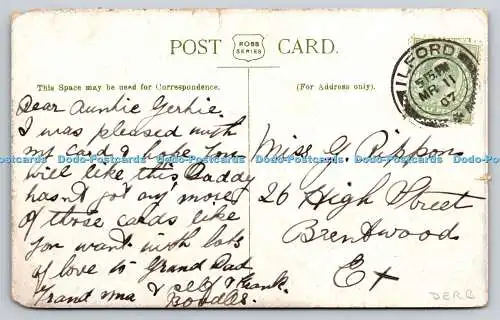 POST ROSS SERIES CARD.
ILFORD
5.15 PM
MR 11
07
This Space may be used for Correspondence.
(For Address only).
Dear Auntie Gertie.
I was pleased with
my card & hope you
will like this Daddy
hasn't got any more
of those cards like
you want with lots
of love to Grand Dad
Grand ma & self & thank
Boodles.
Miss G. Rippon
26 High Street
Brentwoods
Ex
DERB
Dodo-Postcards Dodo-Postcards Dodo-Postcards Dodo-Postcards Dodo-Postcards